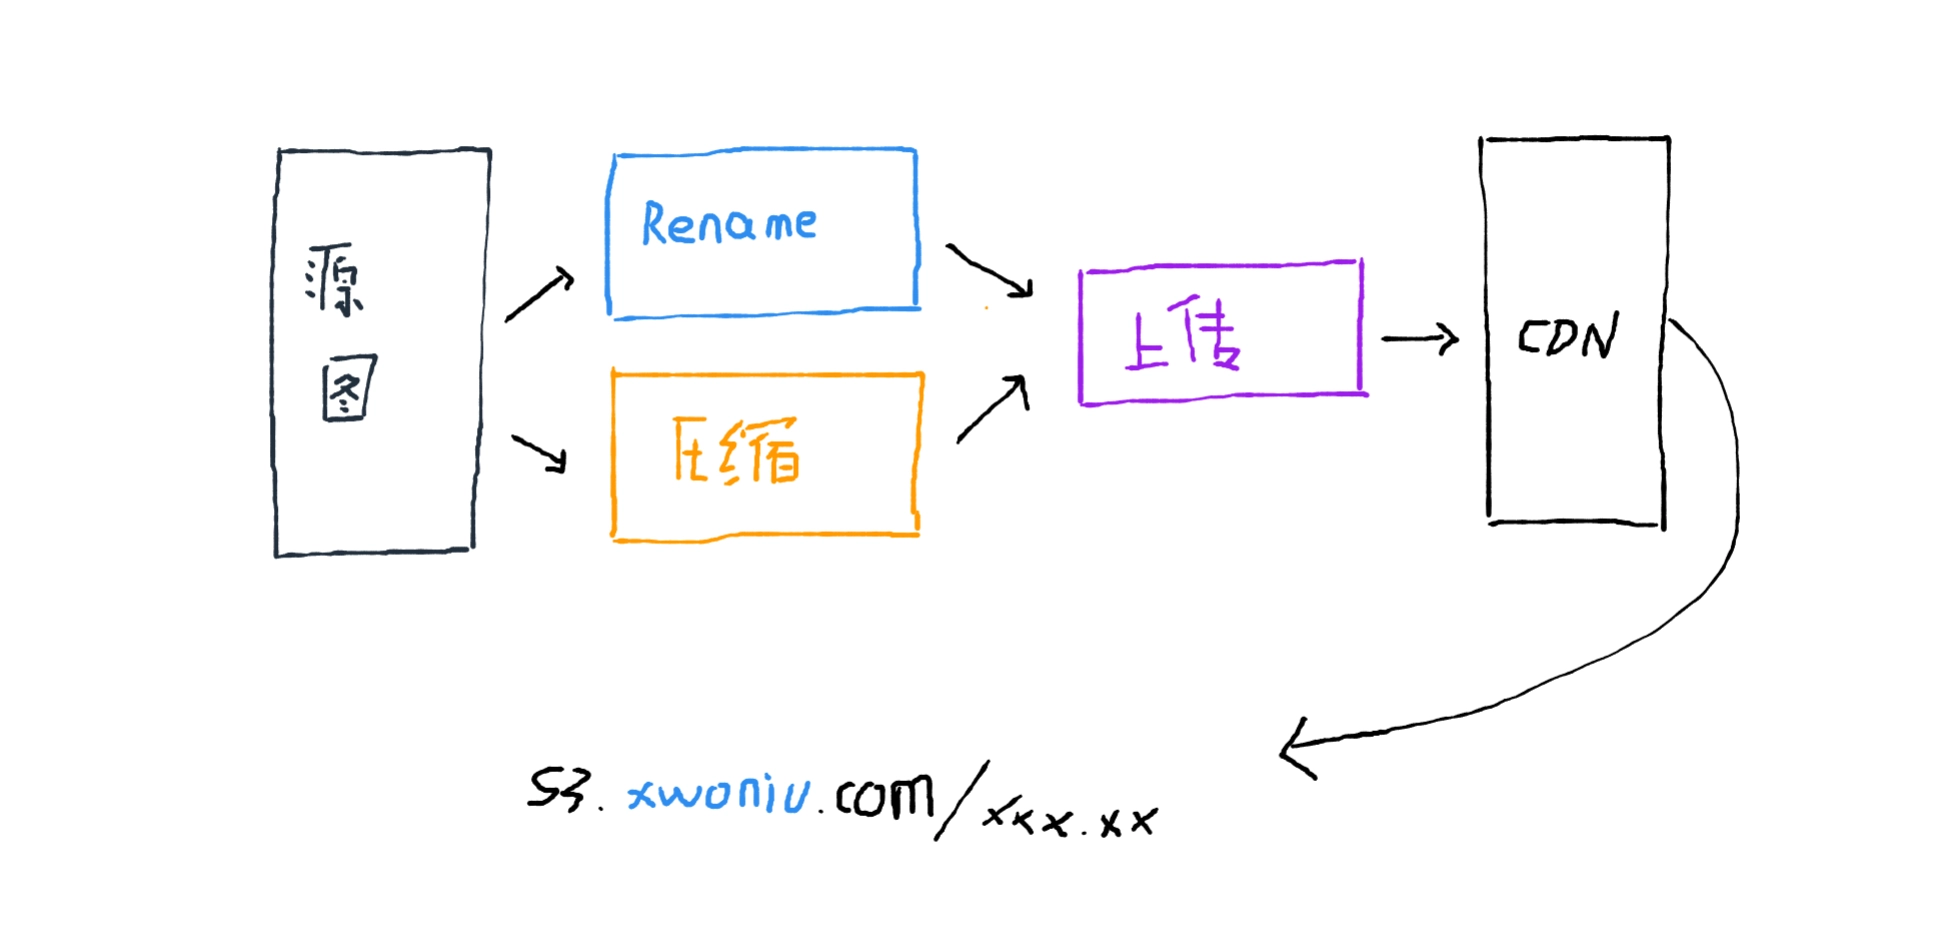 源
图
Rename
压缩
上传
CDN
S3.xwoniu.com/xxx.xx